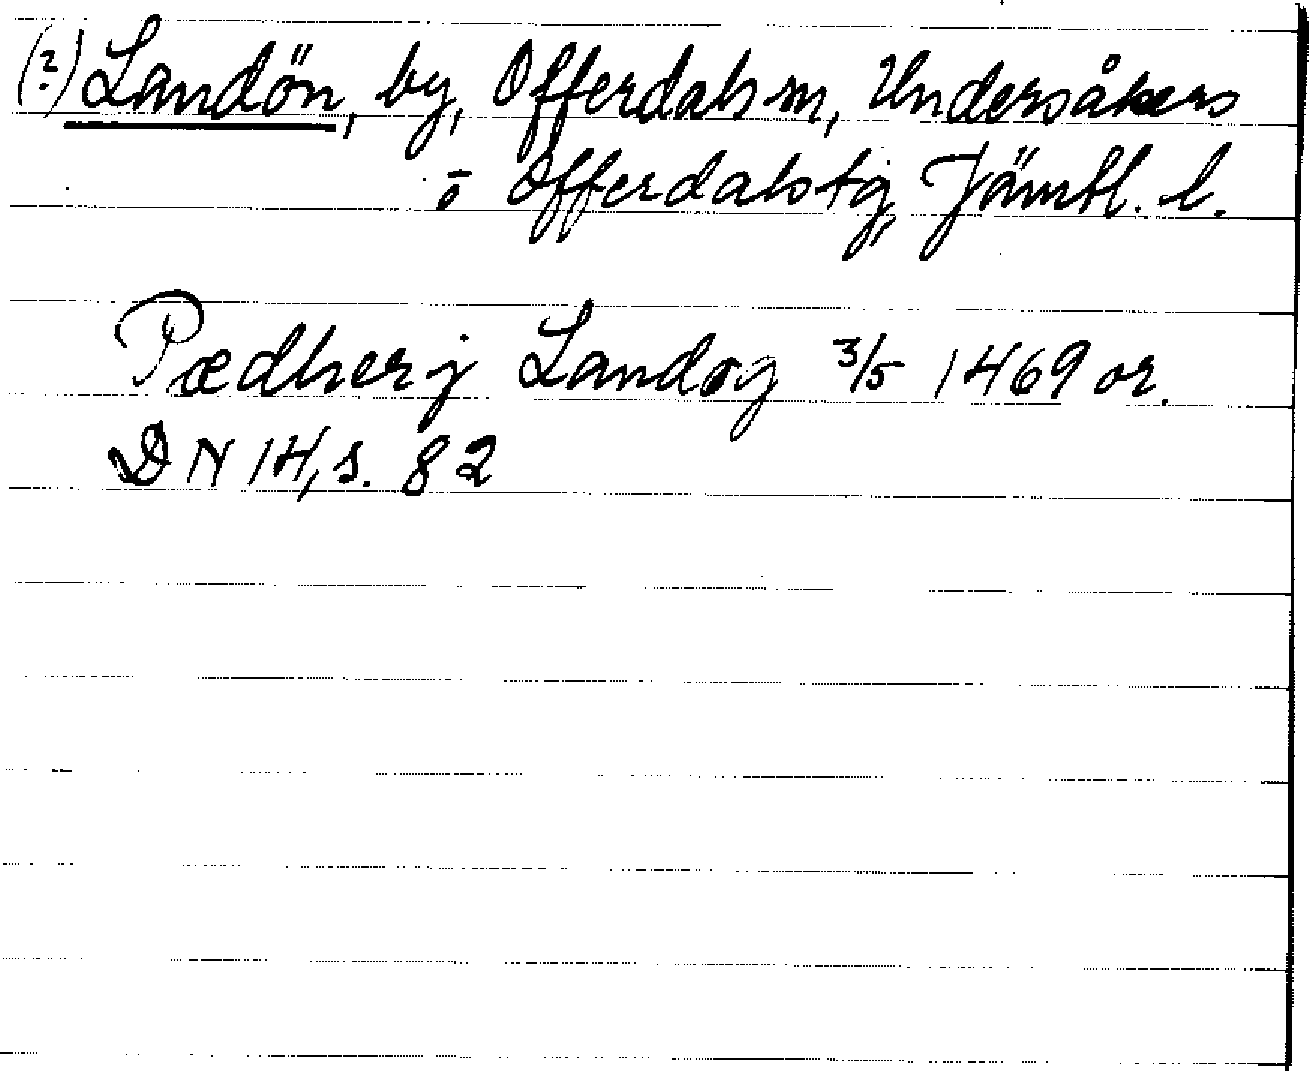 (?) Landön, by, Offerdals sn, Undersåkers
o Offerdals tg, Jämtl. l.
Pædher j Landøy 3/5 1469 or.
DN 14, s. 82